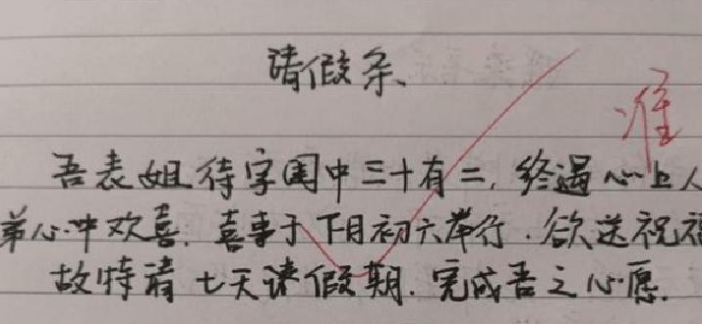 请假条
准
吾表姐待字闺中三十有二,终遇心上人
弟心中欢喜.喜事于下月初六举行.欲送祝福
故特请七天课假期.完成吾之心愿.